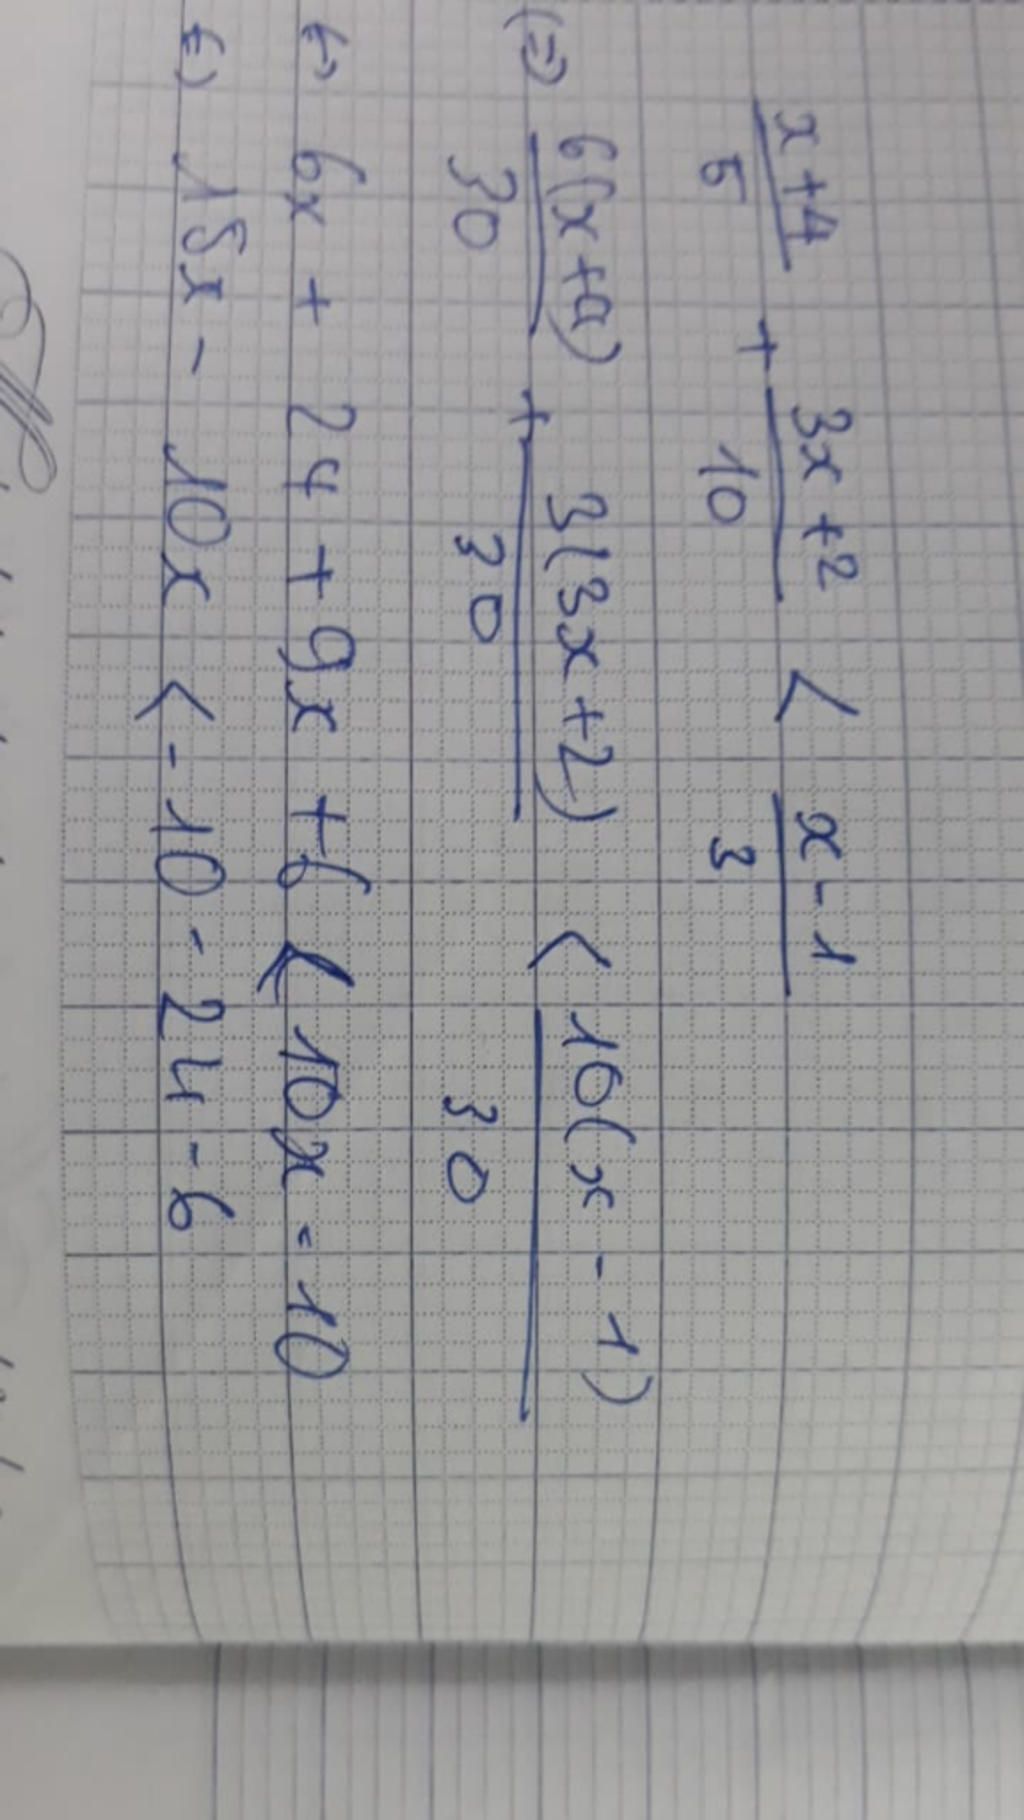 x+4/5 + 3x+2/10 < x-1/3
(=) 6(x+a)/30 + 3(3x+2)/30 < 10(x-1)/30
(-) 6x + 24 + 9x + 6 < 10x - 10
(-) 15x - 10x < -10 - 24 - 6